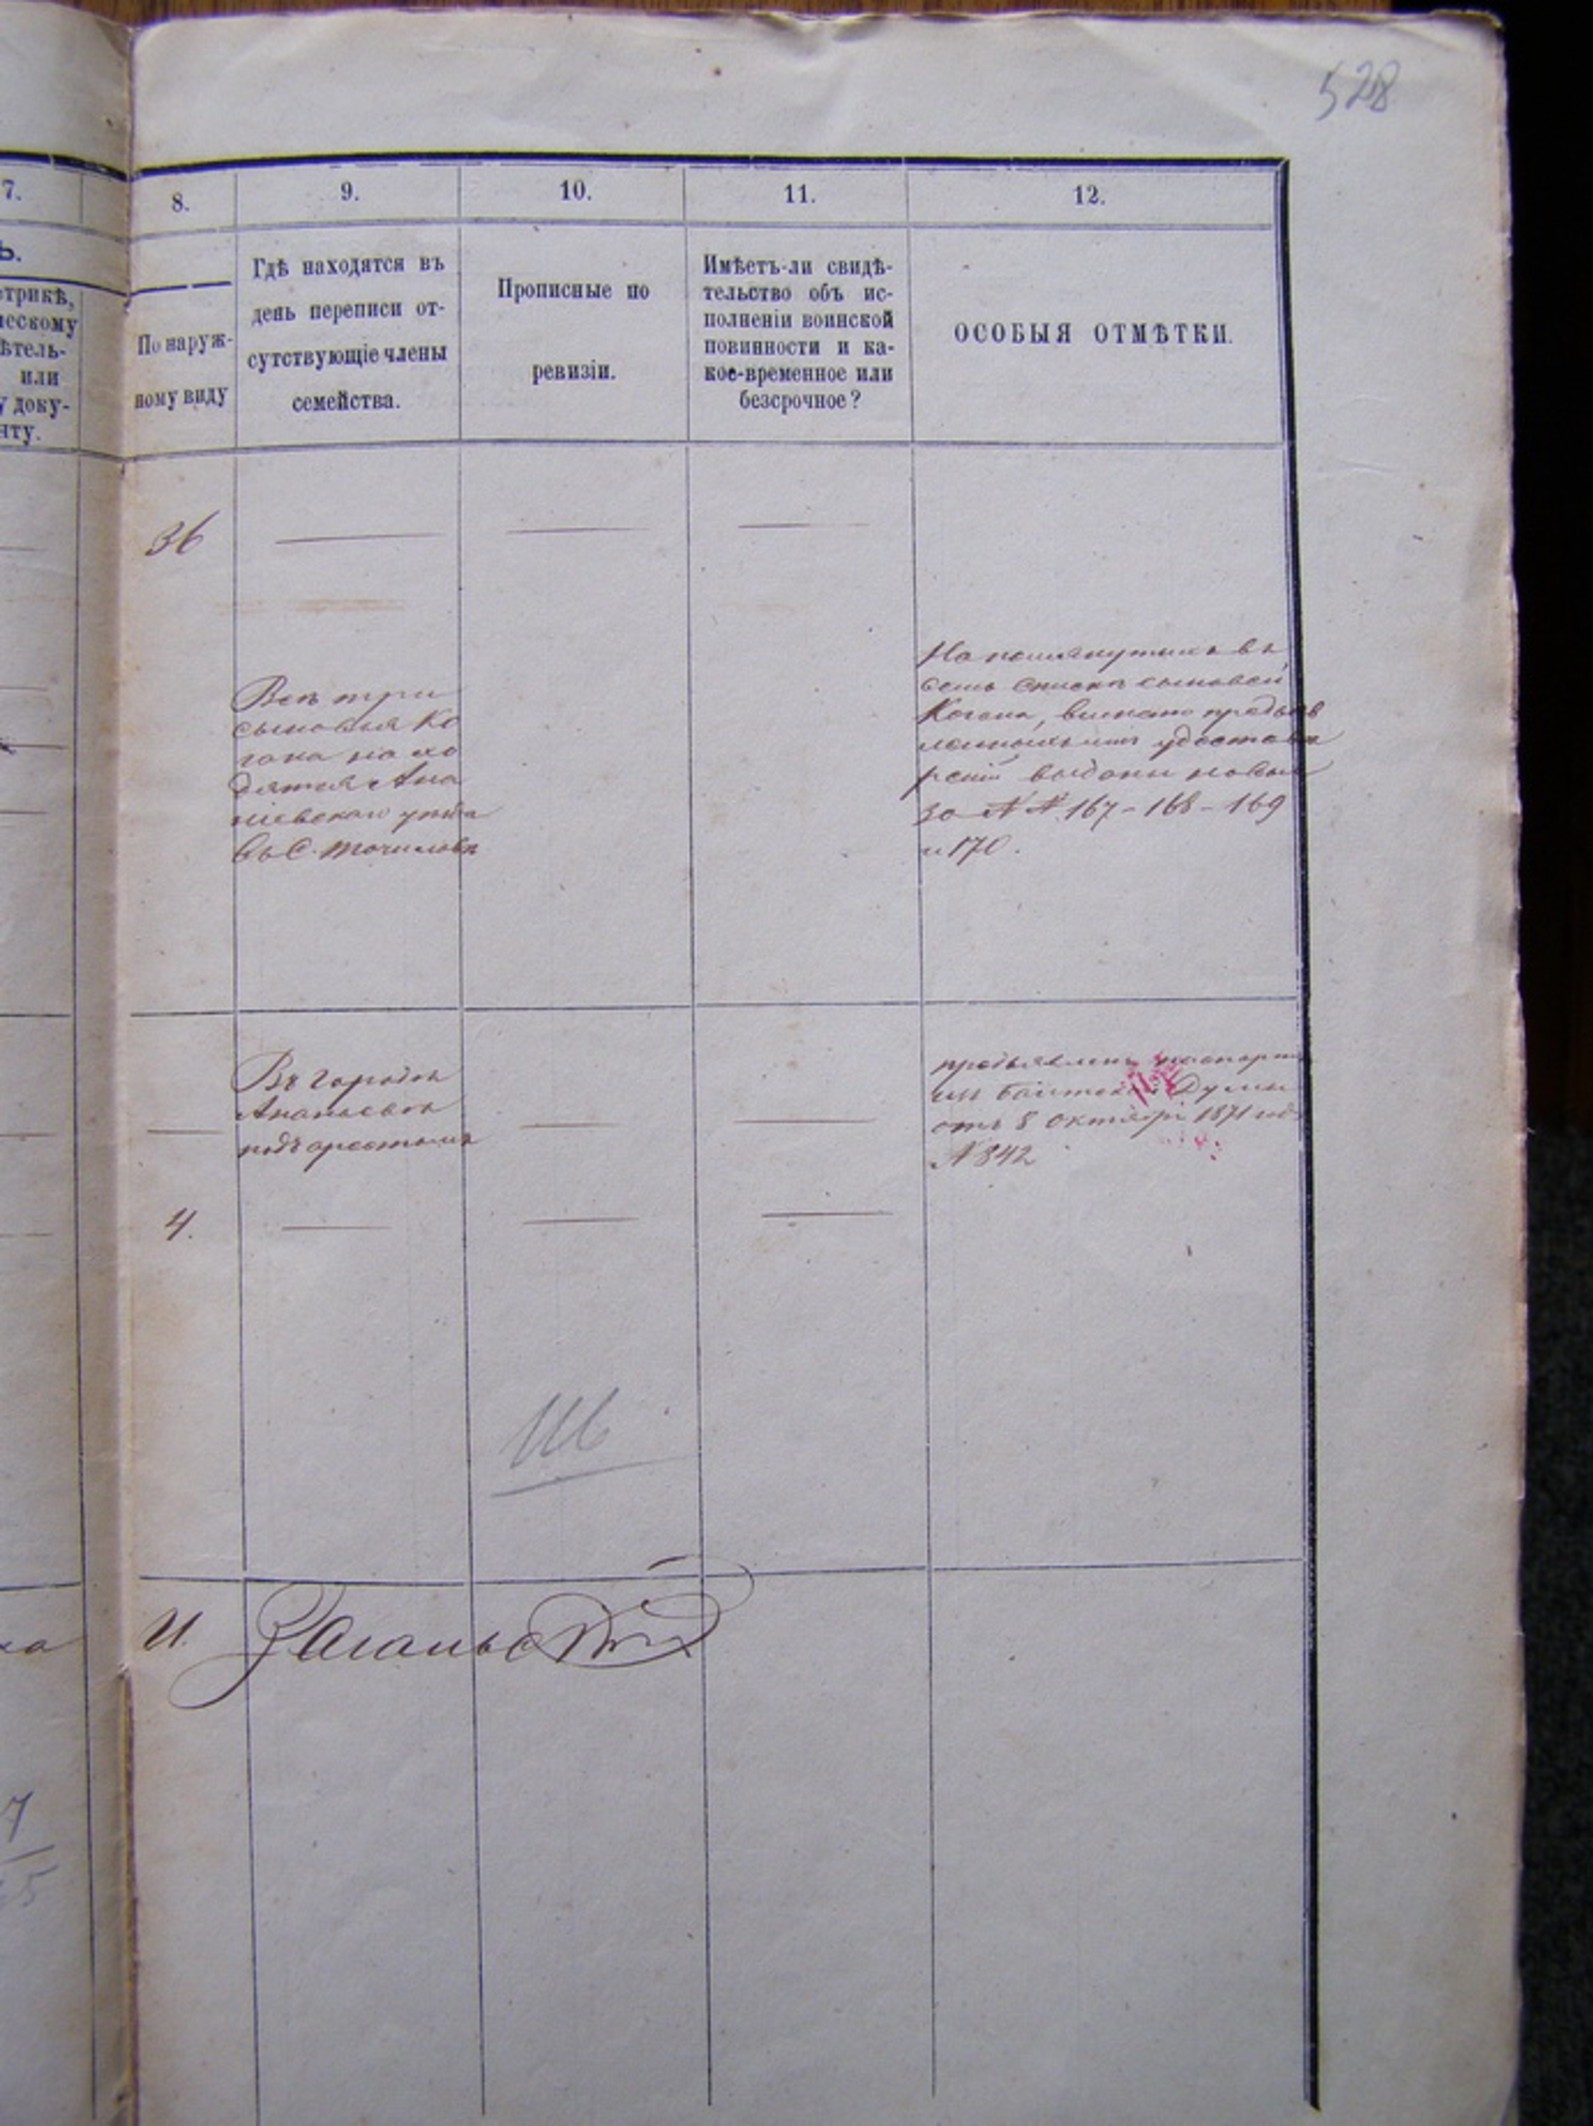 528
7.
8.
9.
10.
11.
12.
Ѣ.
етрикѣ,
ческому
ѣтель-
или
у доку-
нту.
По наруж-
ному виду
Гдѣ находятся въ
день переписи от-
сутствующіе члены
семейства.
Прописные по
ревизіи.
Имѣетъ-ли свидѣ-
тельство объ ис-
полненіи воинской
повинности и ка-
кое-временное или
безсрочное?
ОСОБЫЯ ОТМѢТКИ.
36
Всѣ три
сыновья Ко
гана на хо
дятся Ана
ніевскаго уѣзда
въ С. Точиловѣ
На помянутыхъ въ
семъ спискѣ сыновей
Когана, вмѣсто предъяв
ленныхъ имъ удостовѣ
реній выданы новыя
за № № 167 - 168 - 169
и 170.
Въ городѣ
Ананьевѣ
подъ арестомъ
предъявленъ паспортъ
изъ Думы
отъ 8 октября 1871 года
№ 842
4.
И.